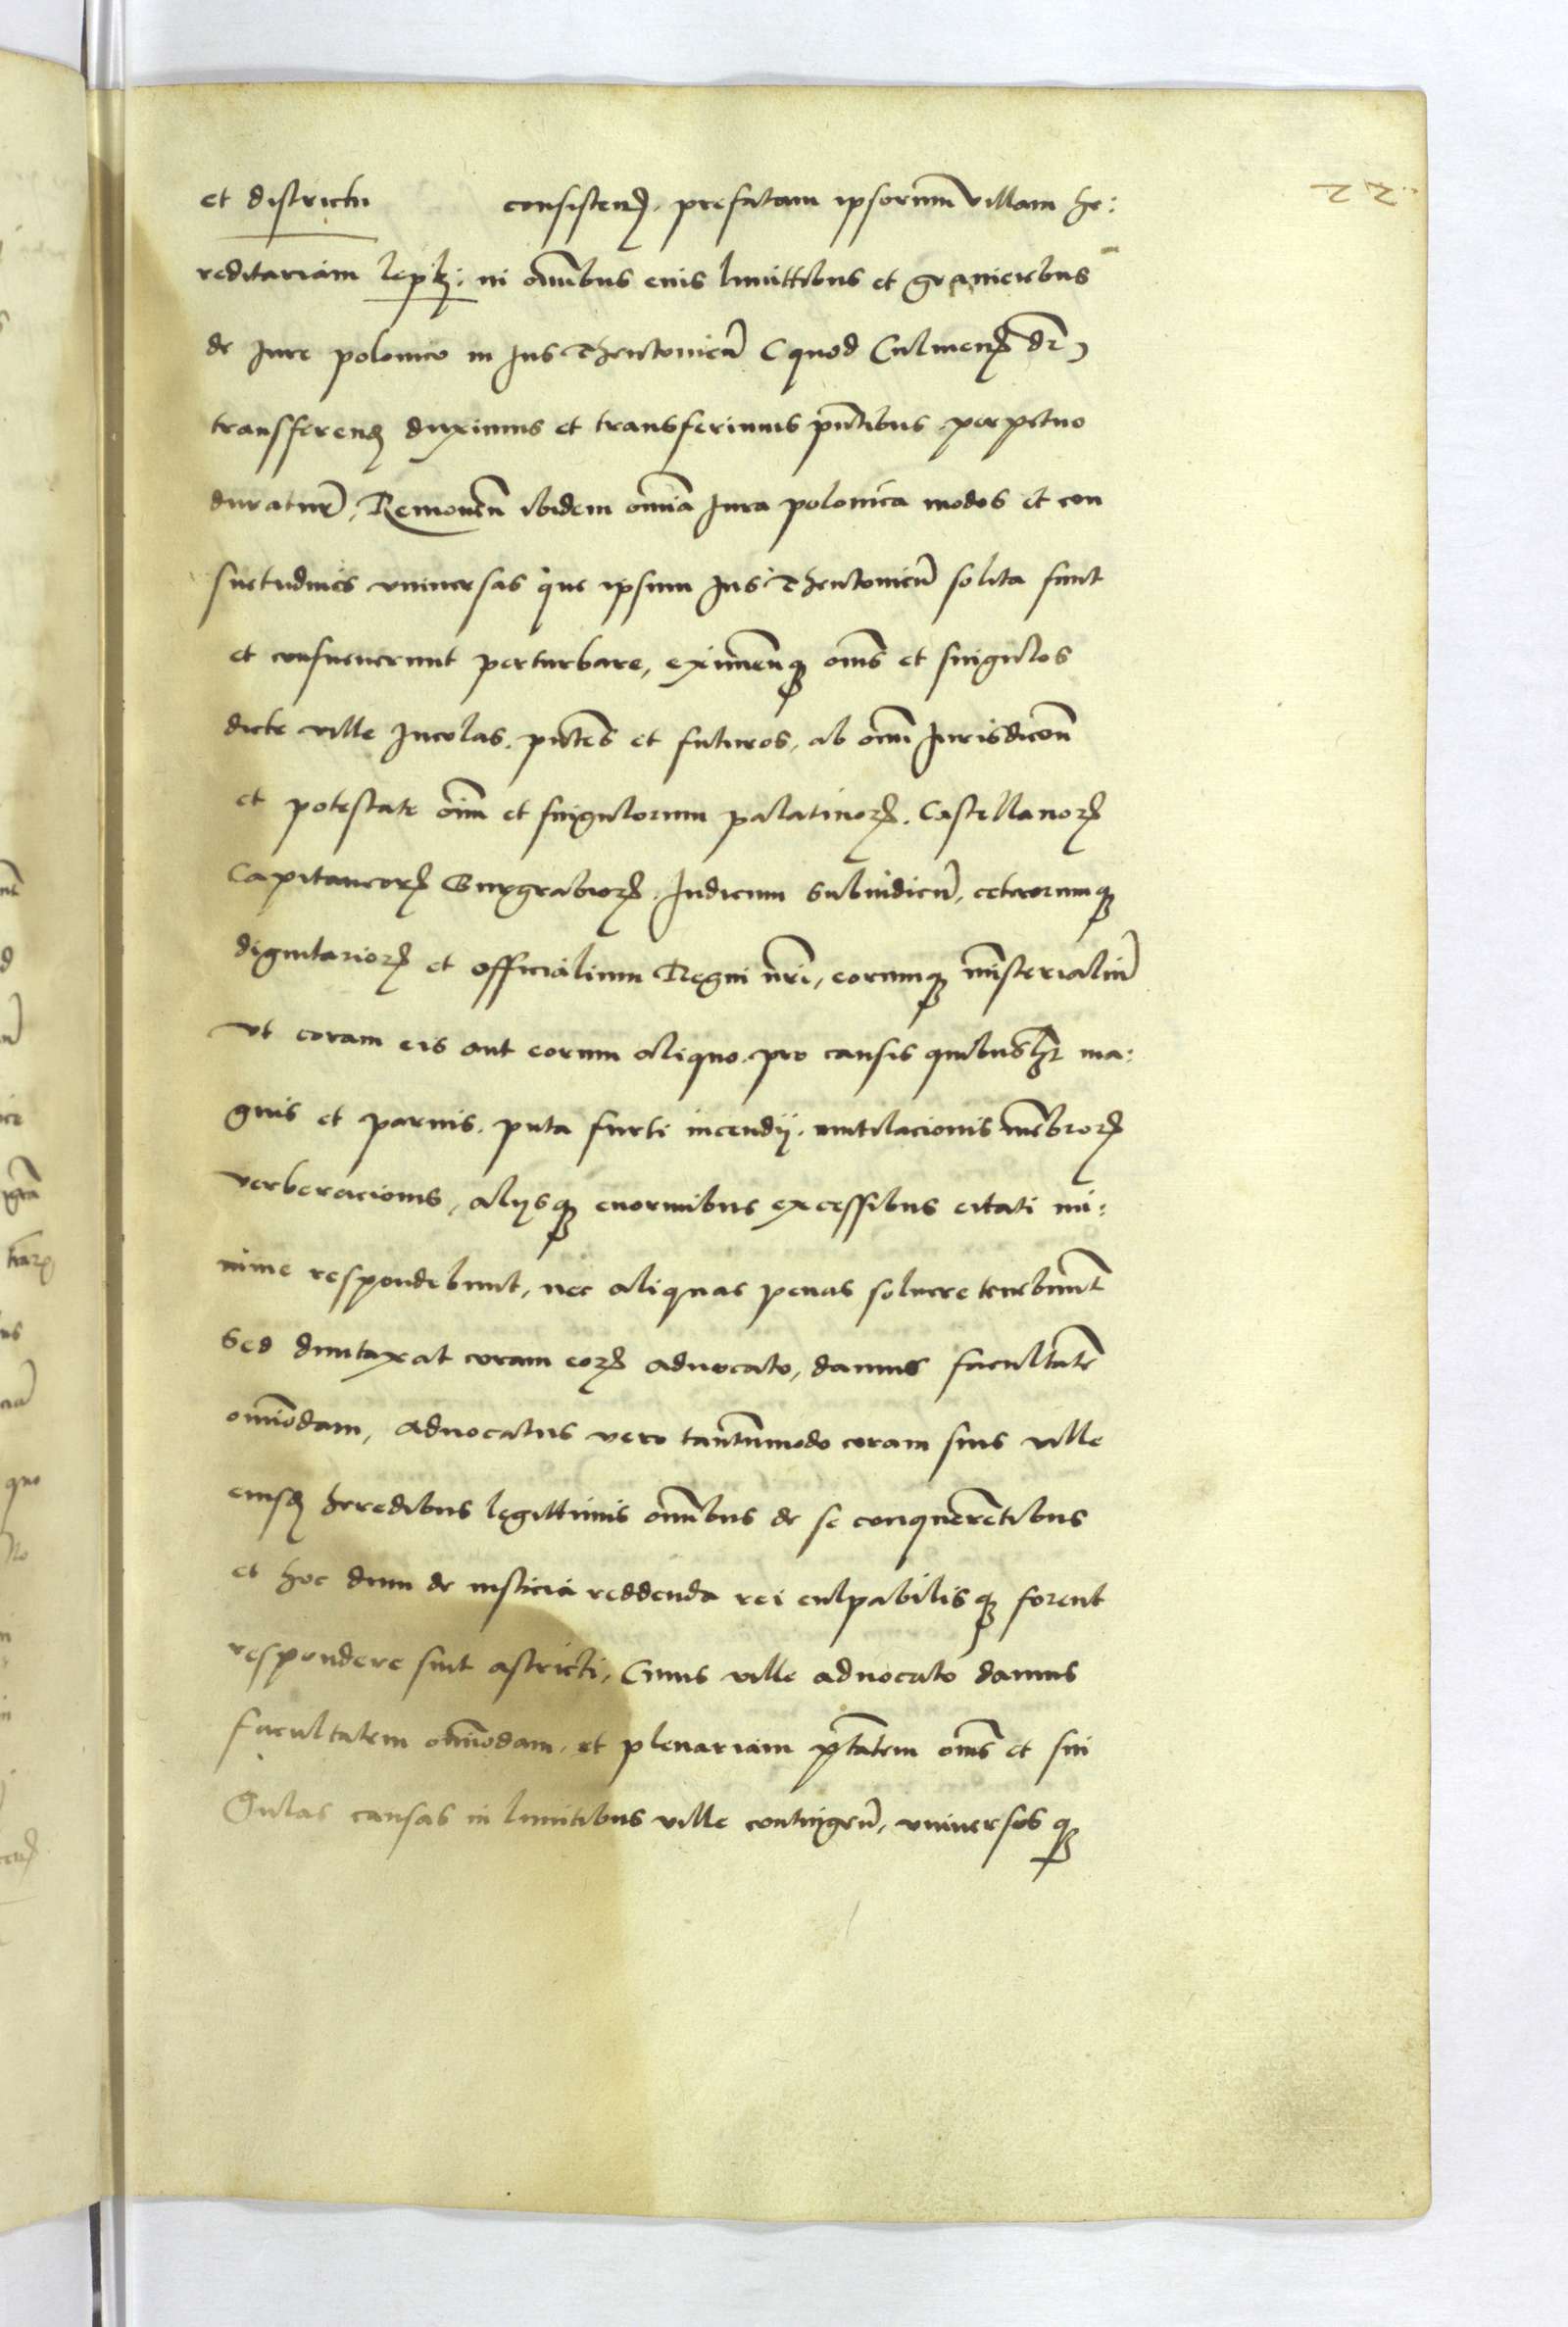 22
et districtu consisten̄. prefatam ipsorum̄ villam he:
reditariam lepki: in om̄ibus eius limittibus et graniciebus
de Jure polonico in Jus Theutonicū (quod Culmen̄ dr̄)
transferen̄ duximus et transferimus pn̄tibus perpetuo
duraturū. Remouen̄ ibidem om̄ia Jura polonica modos et con
suetudines vniuersas que ipsum Jus Theutonicū solita sunt
et consueuerunt perturbare, eximen̄q3 om̄s et singulos
dicte ville Jncolas. pn̄tes et futuros, ab om̄i Jurisdicōn̄
et potestate oīm et singulorum palatinoꝝ. Castellanoꝝ
Capitaneoꝝ Burgrabioꝝ. Judicum Subiudicū, ceterorumq3
dignitarioꝝ et officialium Regni nr̄i, eorumq3 mīsterialiū
vt coram eis aut eorum aliquo. pro causis quibush̄t ma:
gnis et paruis. puta furti incendij. mutilacionis mēbroꝝ
verberacionis, alijsq3 enormibus excessibus citati mi:
nime respondebunt, nec aliquas penas soluere tenebunt̄
Sed duntaxat coram eoꝝ aduocato, damus facultatē
om̄iodam, aduocatus vero tantūmodo coram suis ville
eiusd̄ heredibus legittimis om̄ibus de se conquerētibus
et hoc dum de iusticia reddenda rei culpabilisq3 forent
respondere sint astricti, Cuius ville aduocato damus
facultatem om̄iodam, et plenariam pt̄atem om̄s et sin
Gulas causas in limitibus ville contingen̄, vniuersosq3